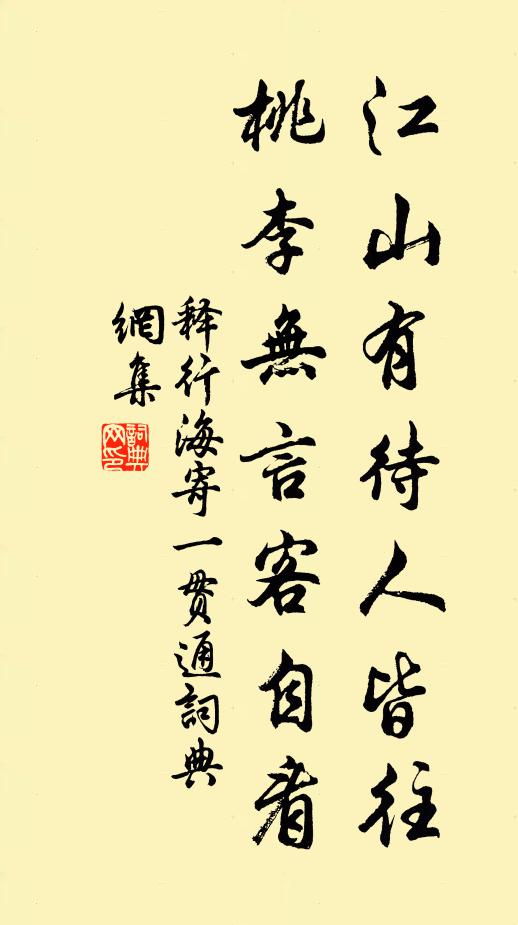 江山有待人皆往
桃李無言客自看
释行海寄一贯通詞典
網集
詞典
网印